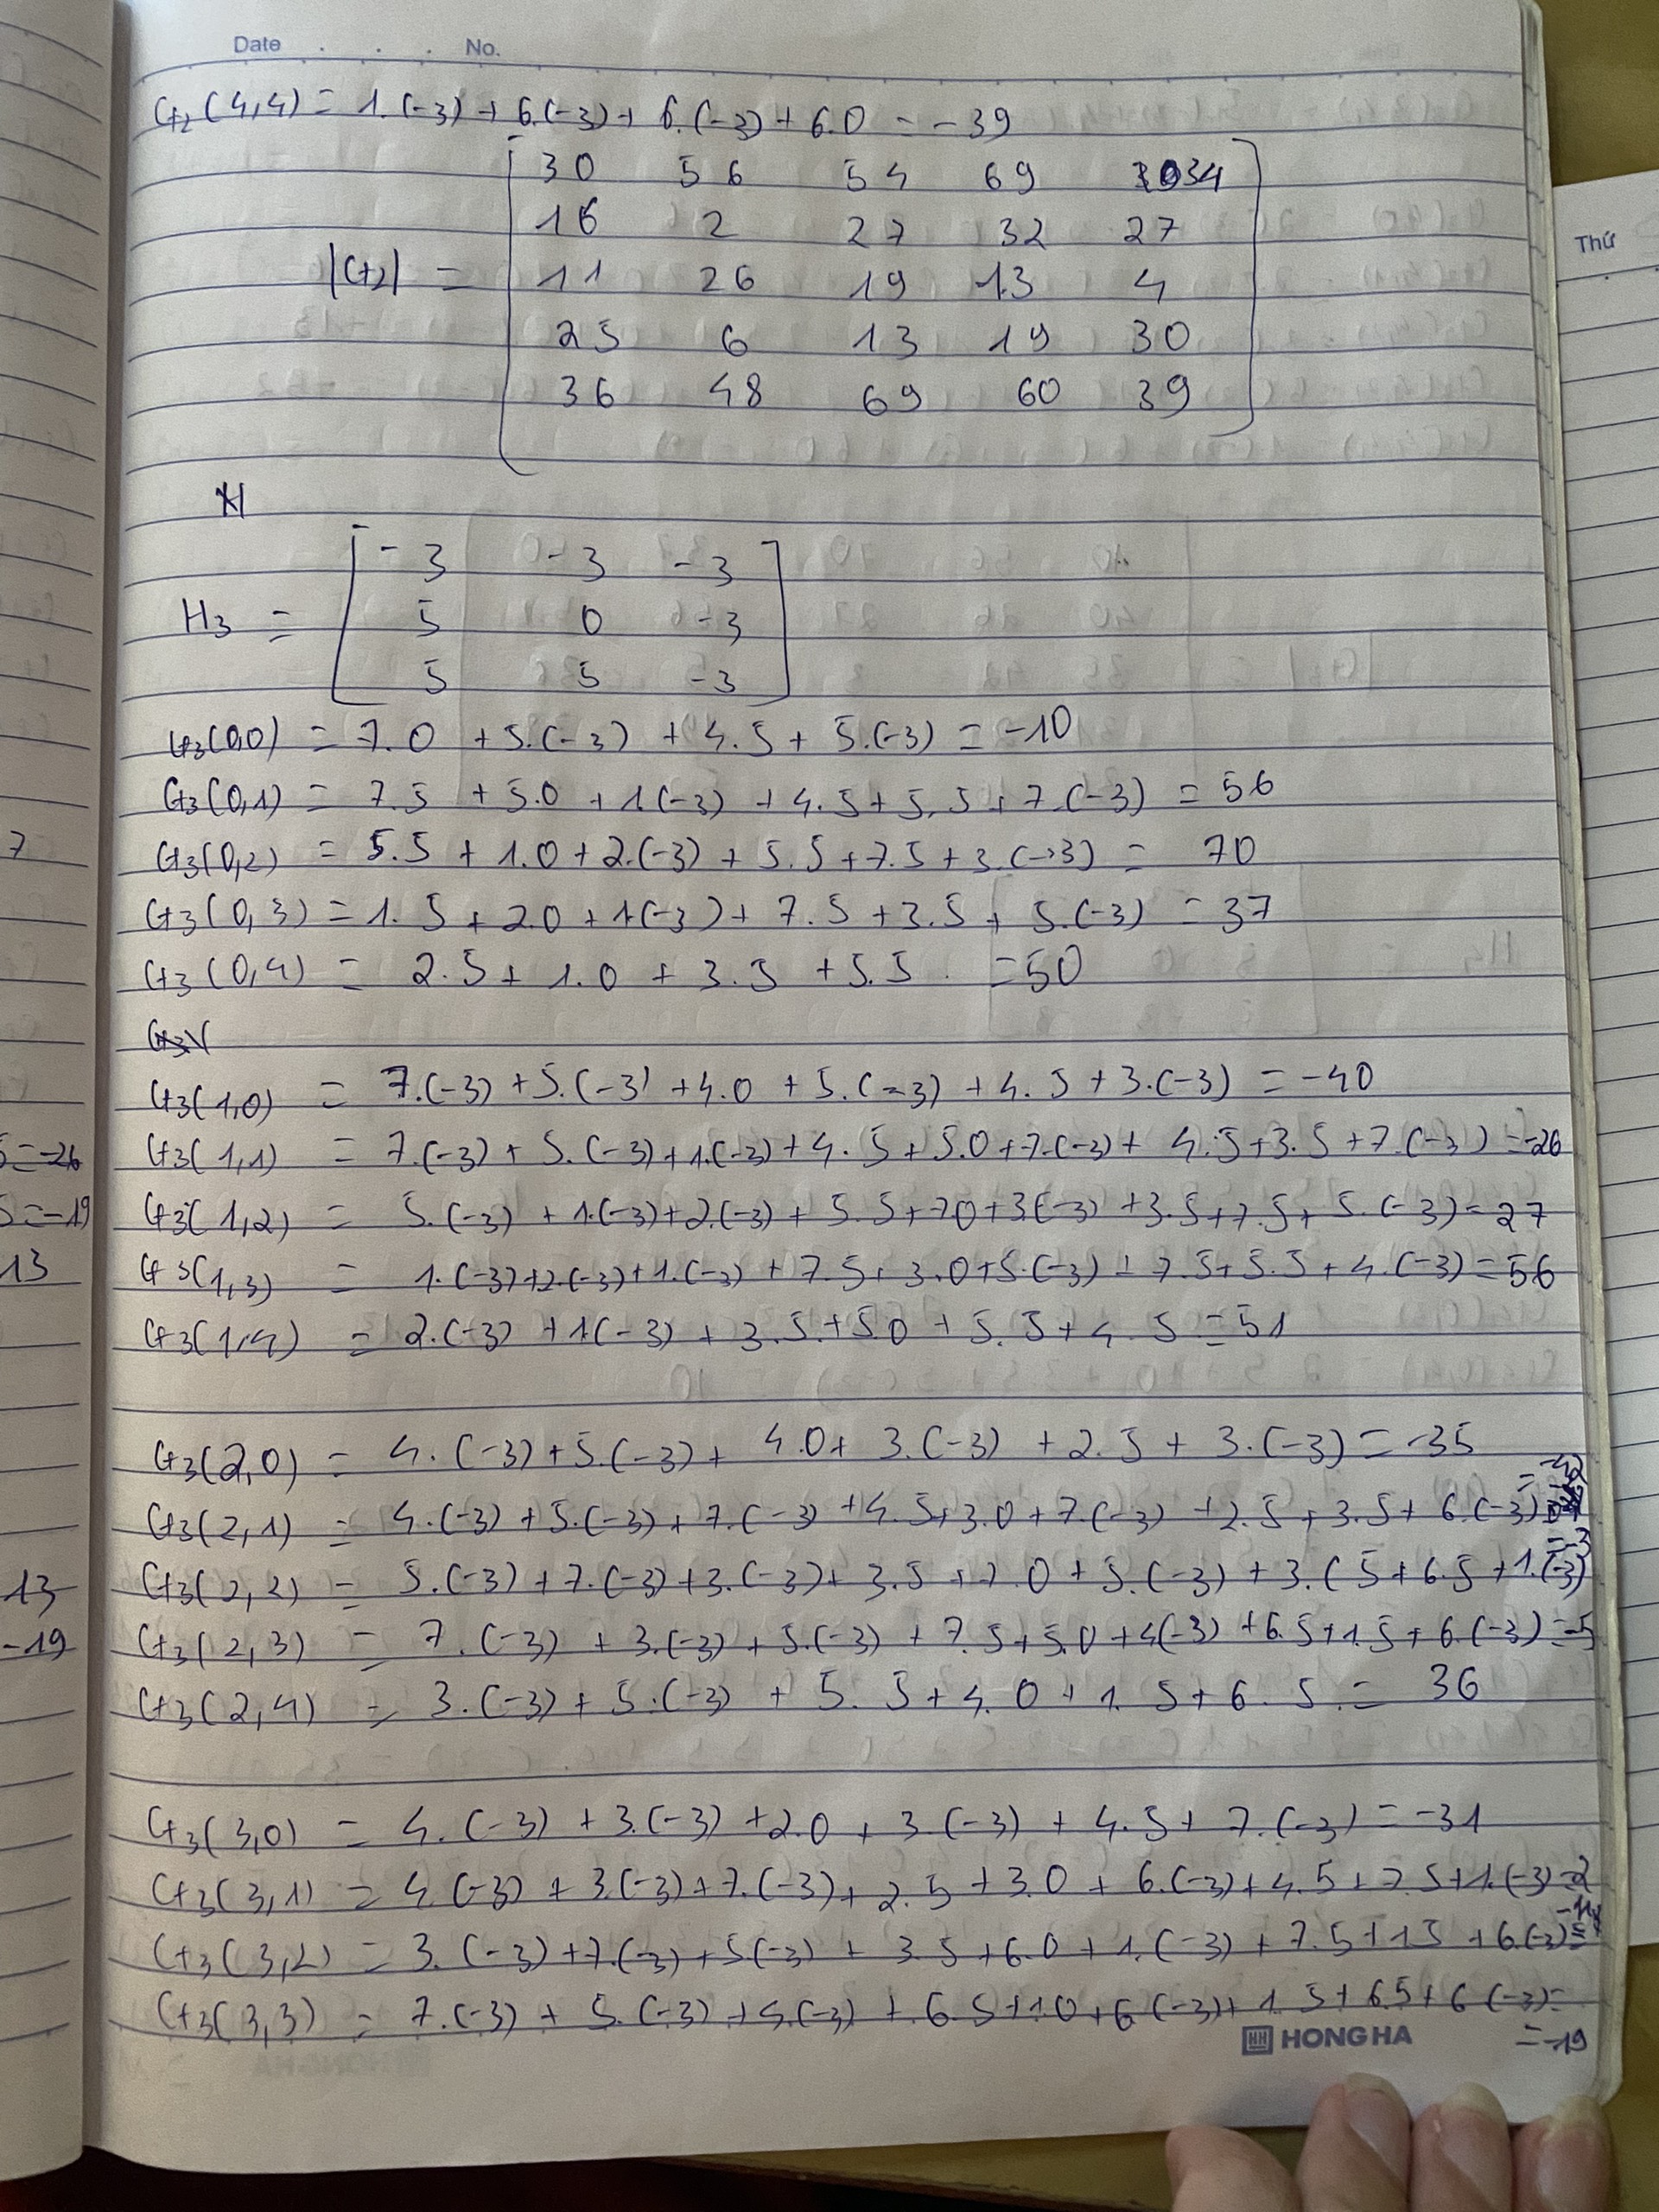 Date . . . No.
G₂(4,4) = 1.(-3) + 6.(-3) + 6.(-3) + 6.0 = -39
30 56 54 69 34
16 2 27 32 27
|G₂| = 11 26 19 13 4
25 6 13 19 30
36 48 69 60 39
H₃ =
-3 -3 -3
5 0 -3
5 5 -3
G₃(0,0) = 7.0 + 5.(-3) + 4.5 + 5.(-3) = -10
G₃(0,1) = 7.5 + 5.0 + 1.(-3) + 4.5 + 5.5 + 7.(-3) = 56
G₃(0,2) = 5.5 + 1.0 + 2.(-3) + 5.5 + 7.5 + 3.(-3) = 70
G₃(0,3) = 1.5 + 2.0 + 1.(-3) + 7.5 + 3.5 + 5.(-3) = 37
G₃(0,4) = 2.5 + 1.0 + 3.5 + 5.5 = 50
G₃(1,0) = 7.(-3) + 5.(-3) + 4.0 + 5.(-3) + 4.5 + 3.(-3) = -40
G₃(1,1) = 7.(-3) + 5.(-3) + 1.(-3) + 4.5 + 5.0 + 7.(-3) + 4.5 + 3.5 + 7.(-3) = -26
G₃(1,2) = 5.(-3) + 1.(-3) + 2.(-3) + 5.5 + 7.0 + 3.(-3) + 3.5 + 7.5 + 5.(-3) = 27
G₃(1,3) = 1.(-3) + 2.(-3) + 1.(-3) + 7.5 + 3.0 + 5.(-3) + 7.5 + 5.5 + 4.(-3) = 56
G₃(1,4) = 2.(-3) + 1.(-3) + 3.5 + 5.0 + 5.5 + 4.5 = 51
G₃(2,0) = 4.(-3) + 5.(-3) + 4.0 + 3.(-3) + 2.5 + 3.(-3) = -35
G₃(2,1) = 4.(-3) + 5.(-3) + 7.(-3) + 4.5 + 3.0 + 7.(-3) + 2.5 + 3.5 + 6.(-3) = -42
G₃(2,2) = 5.(-3) + 7.(-3) + 3.(-3) + 3.5 + 7.0 + 5.(-3) + 3.(5 + 6.5 + 1.(-3) = -3
G₃(2,3) = 7.(-3) + 3.(-3) + 5.(-3) + 7.5 + 5.0 + 4(-3) + 6.5 + 1.5 + 6.(-3) = -5
G₃(2,4) = 3.(-3) + 5.(-3) + 5.5 + 4.0 + 1.5 + 6.5 = 36
G₃(3,0) = 4.(-3) + 3.(-3) + 2.0 + 3.(-3) + 4.5 + 7.(-3) = -31
G₃(3,1) = 4.(-3) + 3.(-3) + 7.(-3) + 2.5 + 3.0 + 6.(-3) + 4.5 + 7.5 + 1.(-3) = 2
G₃(3,2) = 3.(-3) + 7.(-3) + 5(-3) + 3.5 + 6.0 + 1.(-3) + 7.5 + 1.5 + 6.(-3) =
G₃(3,3) = 7.(-3) + 5.(-3) + 4.(-3) + 6.5 + 1.0 + 6(-3) + 1.5 + 6.5 + 6(-3) =
= -19
HONG HA
7
5 = -26
5 = -19
13
13
-19
Thứ